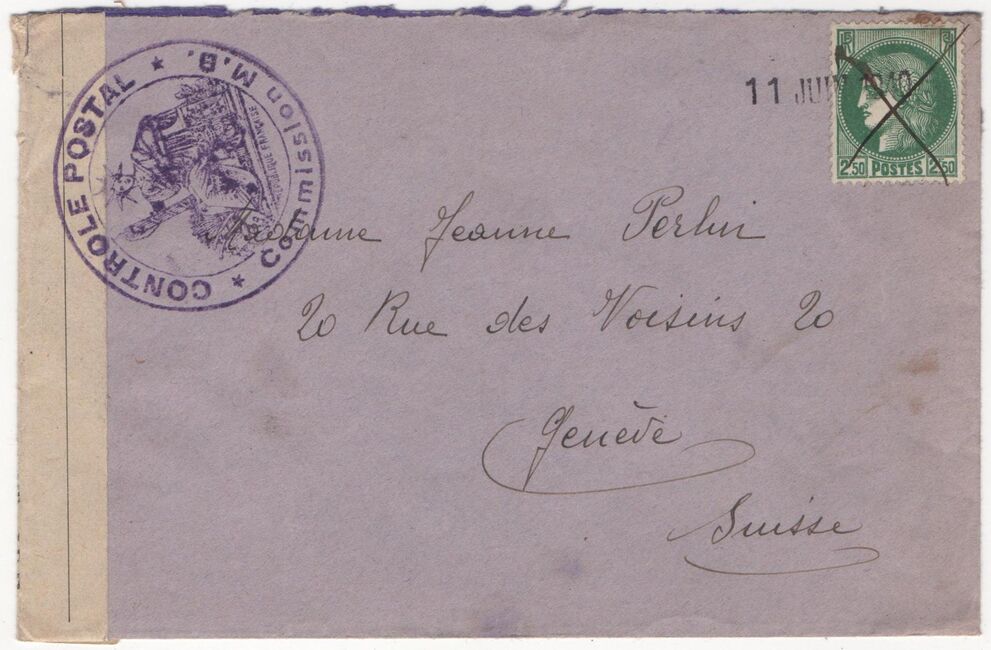 CONTROLE POSTAL ★ Commission M.B. ★
REPUBLIQUE FRANÇAISE
11 JUIN 1940
RF
2,50 POSTES 2,50
Madame Jeanne Perlin
20 Rue des Voisins 20
Genève
Suisse